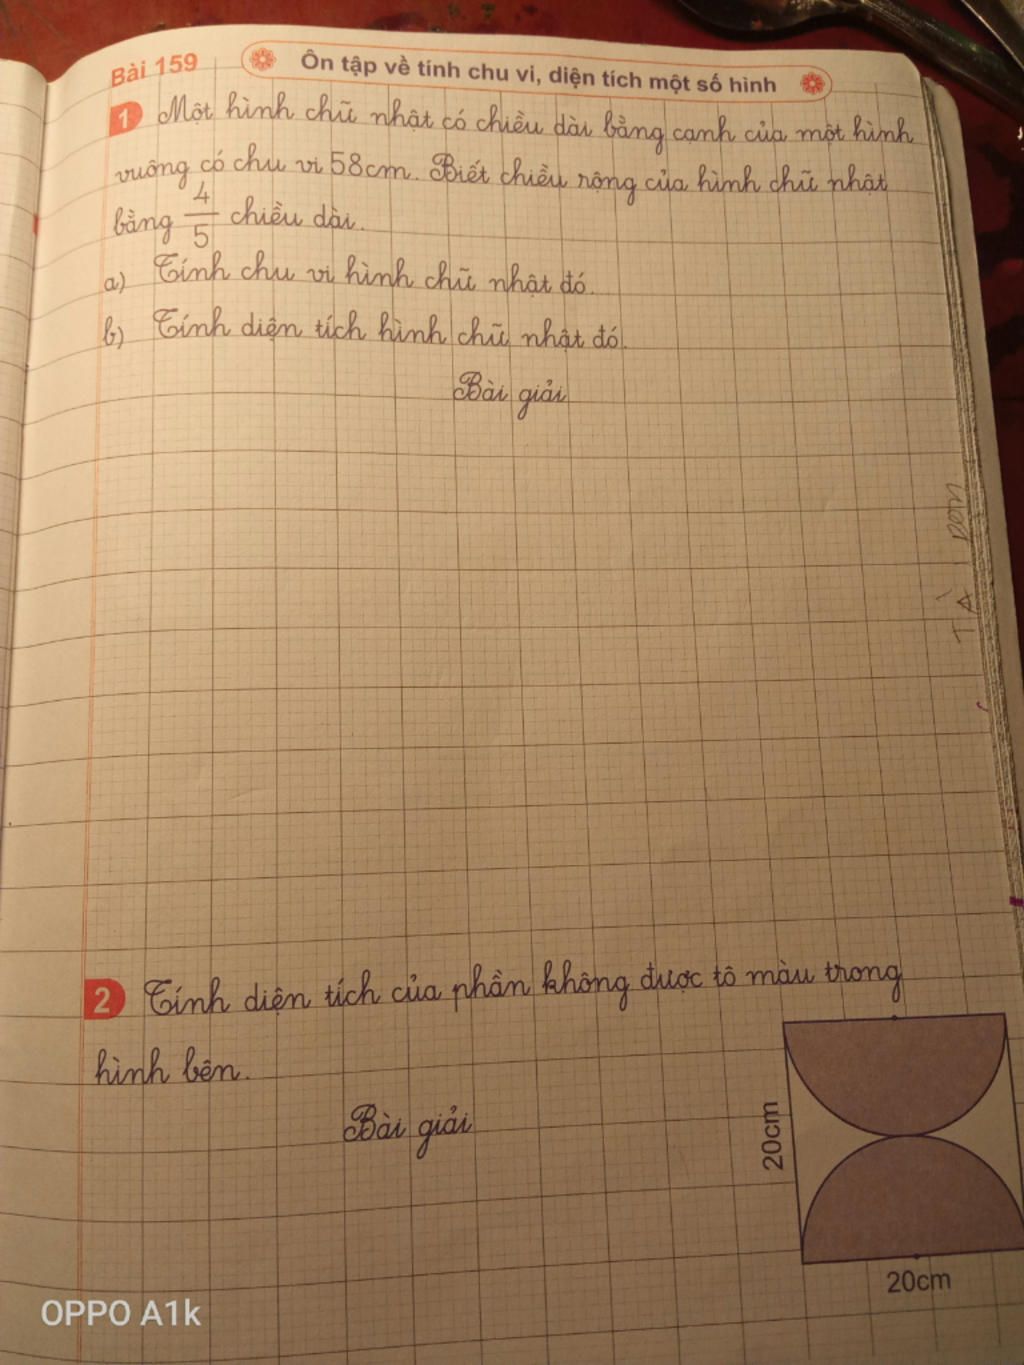 Bài 159
Ôn tập về tính chu vi, diện tích một số hình
1 Một hình chữ nhật có chiều dài bằng cạnh của một hình
vuông có chu vi 58cm. Biết chiều rộng của hình chữ nhật
bằng 4/5 chiều dài.
a) Tính chu vi hình chữ nhật đó.
b) Tính diện tích hình chữ nhật đó.
Bài giải
2 Tính diện tích của phần không được tô màu trong
hình bên.
Bài giải
20cm
20cm
OPPO A1k